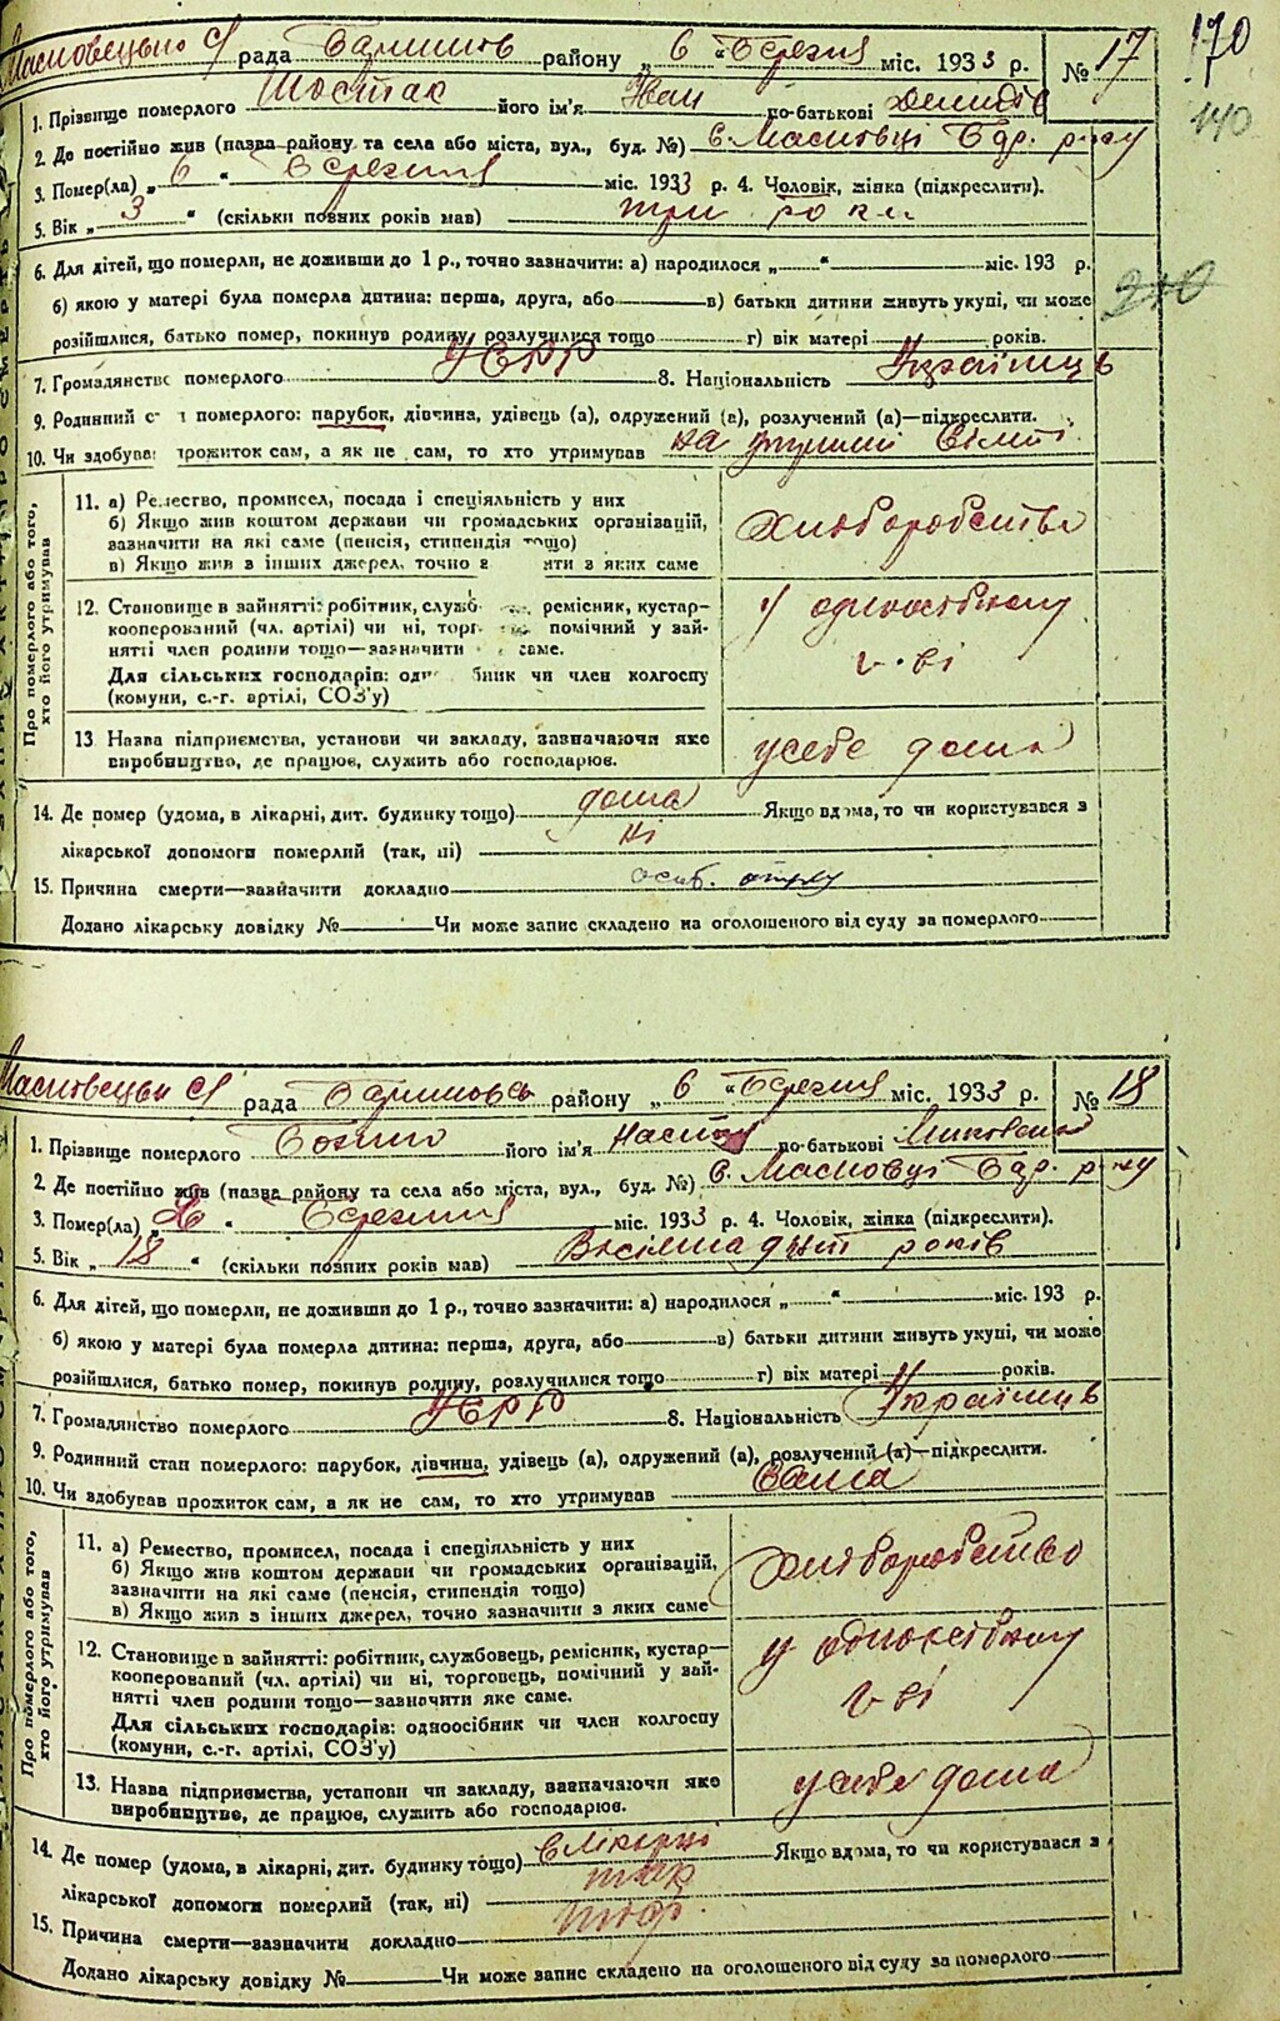 170
140
210
рада району „ 6 “ Березня міс. 1933 р. № 17
1. Прізвище померлого Шостак його ім'я Іван по-батькові
2. Де постійно жив (назва району та села або міста, вул., буд. №) с. Масновці р-ну
3. Помер(ла) „ 6 “ Березня міс. 1933 р. 4. Чоловік, жінка (підкреслити).
5. Вік „ 3 “ (скільки повних років мав) три роки
6. Для дітей, що померли, не доживши до 1 р., точно зазначити: а) народилося „ “ міс. 193 р.
б) якою у матері була померла дитина: перша, друга, або в) батьки дитини живуть укупі, чи може
розійшлися, батько помер, покинув родину, розлучилися тощо г) вік матері років.
7. Громадянство померлого УСРР 8. Національність Українців
9. Родинний померлого: парубок, дівчина, удівець (а), одружений (а), розлучений (а)—підкреслити.
10. Чи здобував прожиток сам, а як не сам, то хто утримував на
Про померлого або того,
хто його утримував
11. а) Ремество, промисел, посада і спеціяльність у них
б) Якщо жив коштом держави чи громадських організацій,
зазначити на які саме (пенсія, стипендія тощо)
в) Якщо жив з інших джерел, точно з яких саме
Хліборобство
12. Становище в зайнятті: робітник, служб ремісник, кустар—
кооперований (чл. артілі) чи ні, торг помічний у зай-
нятті член родини тощо—зазначити саме.
Для сільських господарів: од бник чи член колгоспу
(комуни, с.-г. артілі, СОЗ'у)
у
г-ві
13 Назва підприємства, установи чи закладу, зазначаючи яке
виробництво, де працює, служить або господарює.
у себе дома
14. Де помер (удома, в лікарні, дит. будинку тощо) дома Якщо вдома, то чи користувався з
лікарської допомоги померлий (так, ні) ні
15. Причина смерти—зазначити докладно
Додано лікарську довідку № Чи може запис складено на оголошеного від суду за померлого
рада району „ 6 “ Березня міс. 1933 р. № 18
1. Прізвище померлого його ім'я по-батькові
2. Де постійно жив (назва району та села або міста, вул., буд. №) с. Масновці р-ну
3. Помер(ла) „ “ Березня міс. 1933 р. 4. Чоловік, жінка (підкреслити).
5. Вік „ 18 “ (скільки повних років мав) років
6. Для дітей, що померли, не доживши до 1 р., точно зазначити: а) народилося „ “ міс. 193 р.
б) якою у матері була померла дитина: перша, друга, або в) батьки дитини живуть укупі, чи може
розійшлися, батько помер, покинув родину, розлучилися тощо г) вік матері років.
7. Громадянство померлого УСРР 8. Національність Українців
9. Родинний стан померлого: парубок, дівчина, удівець (а), одружений (а), розлучений (а)—підкреслити.
10. Чи здобував прожиток сам, а як не сам, то хто утримував Сама
Про померлого або того,
хто його утримував
11. а) Ремество, промисел, посада і спеціяльність у них
б) Якщо жив коштом держави чи громадських організацій,
зазначити на які саме (пенсія, стипендія тощо)
в) Якщо жив з інших джерел, точно зазначити з яких саме
Хліборобство
12. Становище в зайнятті: робітник, службовець, ремісник, кустар—
кооперований (чл. артілі) чи ні, торговець, помічний у зай-
нятті член родини тощо—зазначити яке саме.
Для сільських господарів: одноосібник чи член колгоспу
(комуни, с.-г. артілі, СОЗ'у)
у
г-ві
13. Назва підприємства, установи чи закладу, зазначаючи яке
виробництво, де працює, служить або господарює.
у себе дома
14. Де помер (удома, в лікарні, дит. будинку тощо) в лікарні Якщо вдома, то чи користувався з
лікарської допомоги померлий (так, ні) так
15. Причина смерти—зазначити докладно
Додано лікарську довідку № Чи може запис складено на оголошеного від суду за померлого